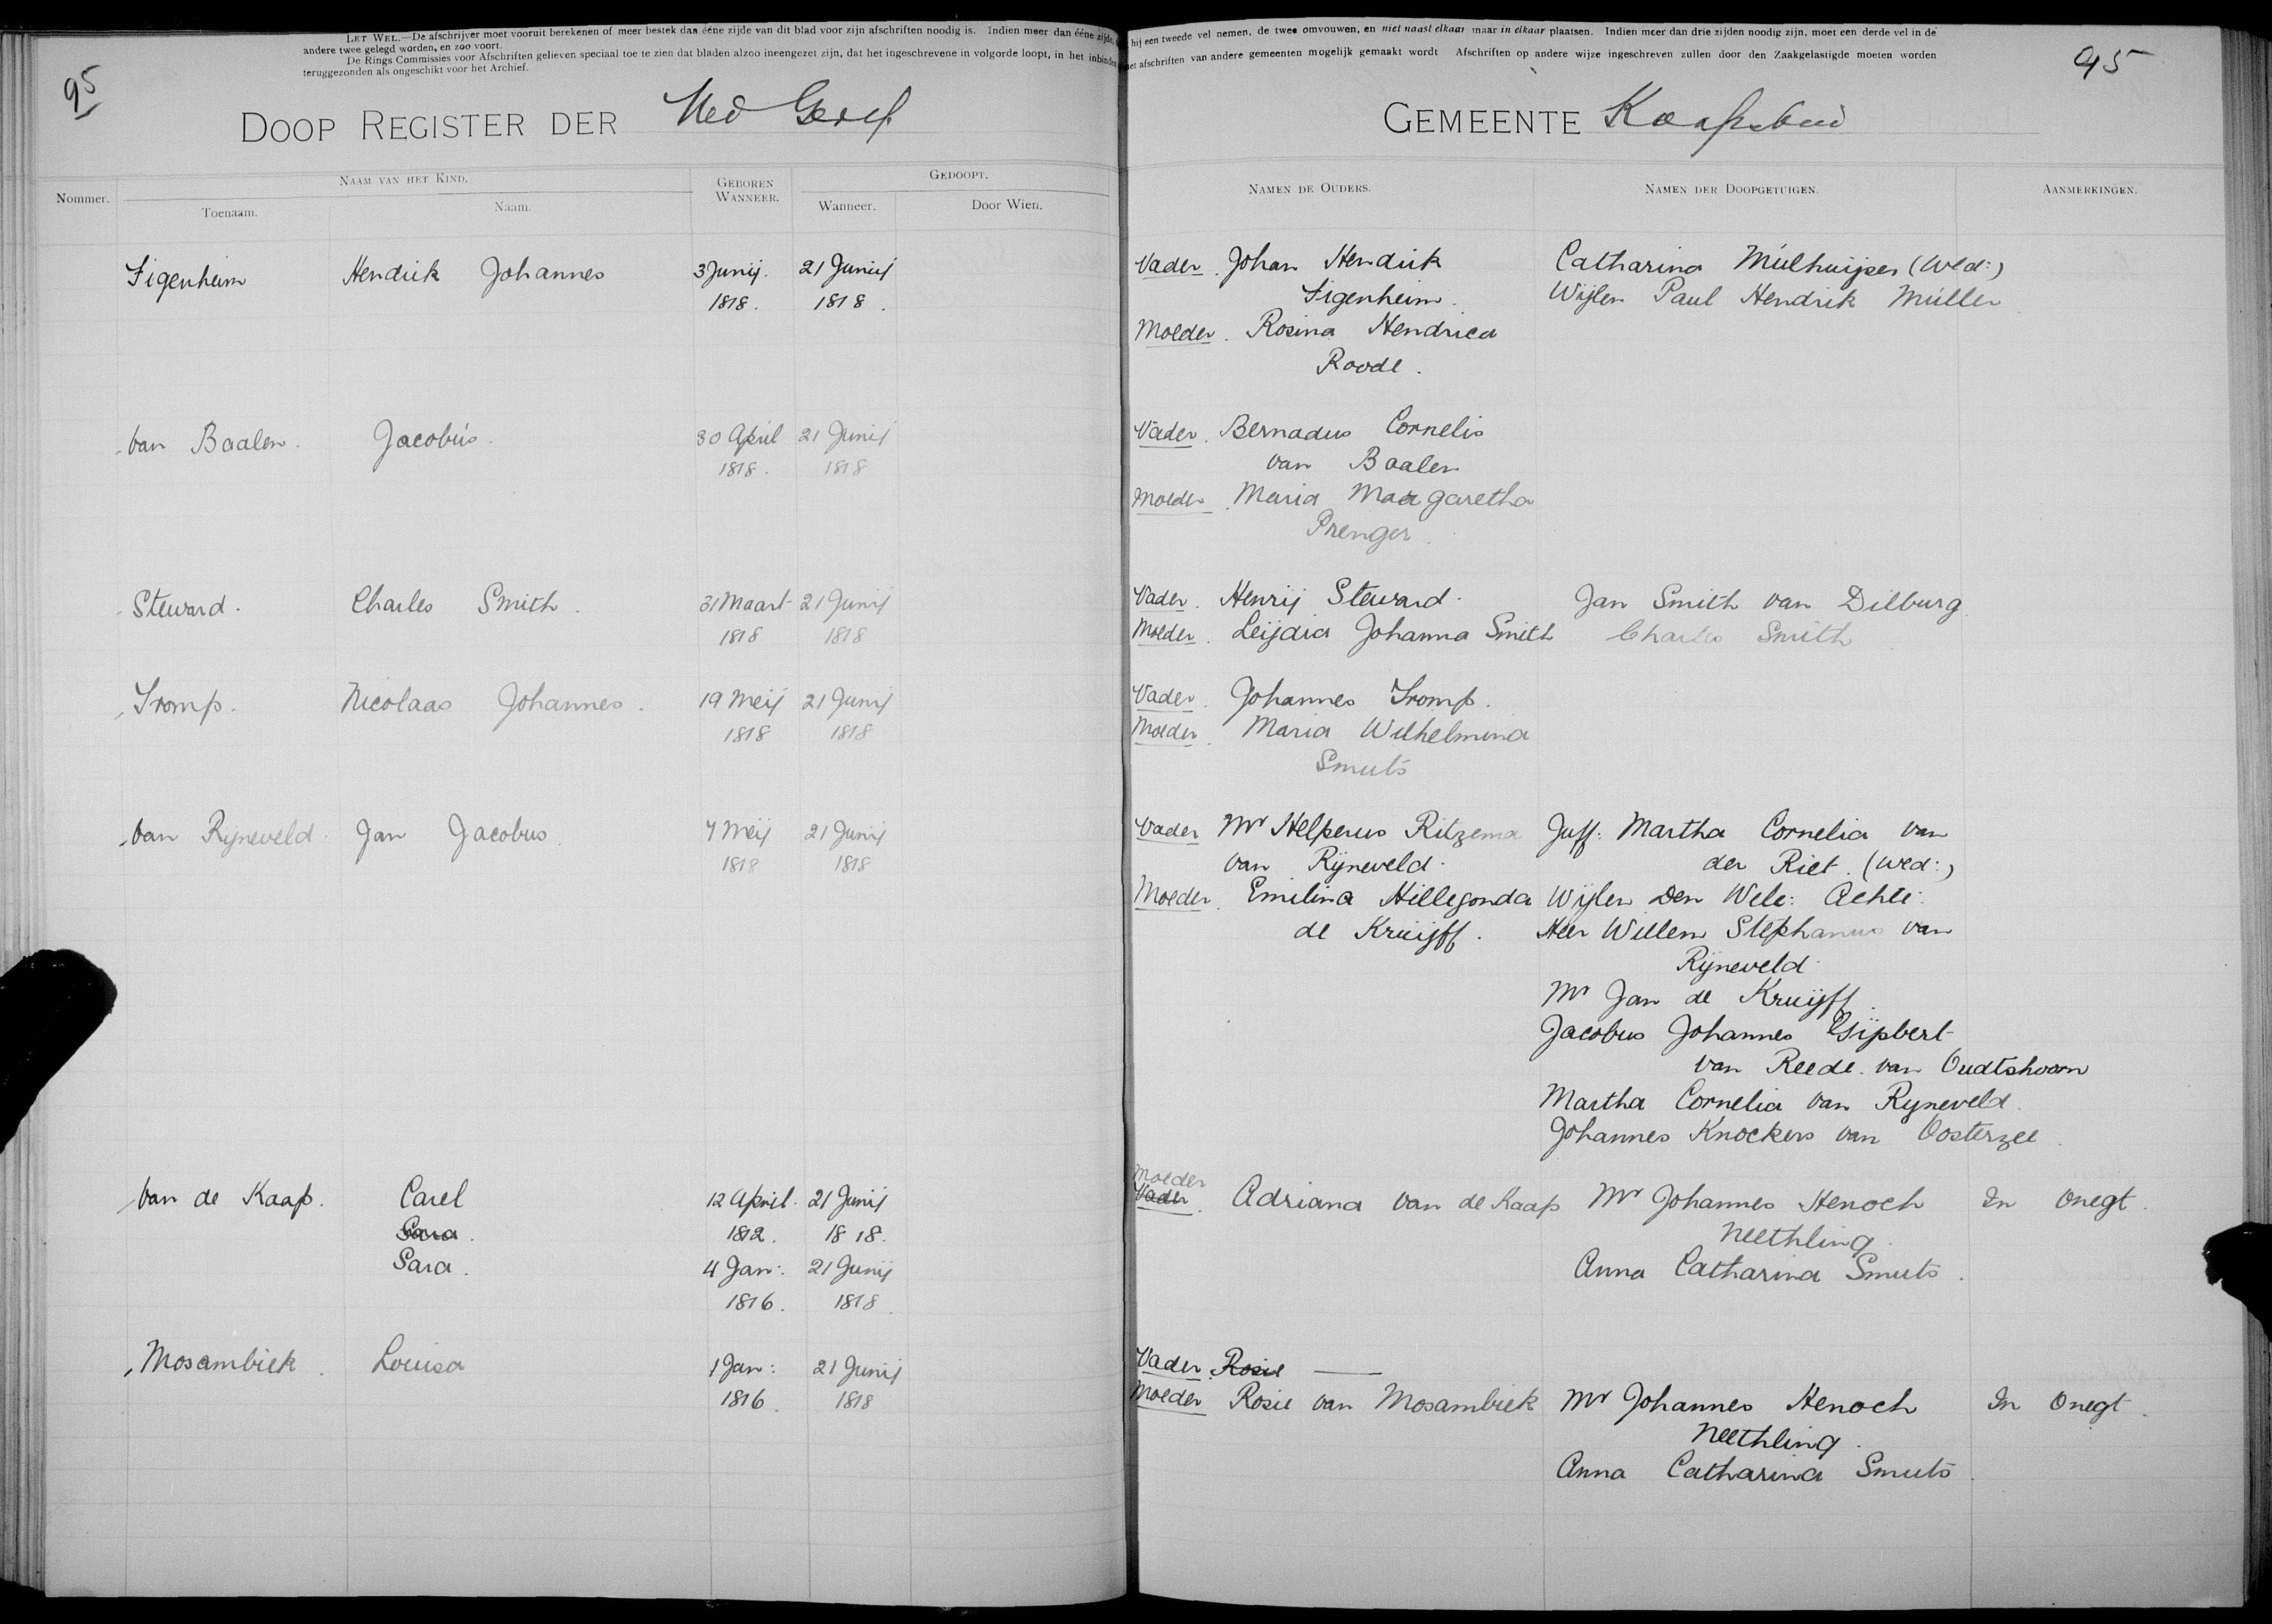 LET WEL.—De afschrijver moet vooruit berekenen of meer bestek dan ééne zijde van dit blad voor zijn afschriften noodig is. Indien meer dan ééne zijde,
andere twee gelegd worden, en zoo voort.
De Rings Commissies voor Afschriften gelieven speciaal toe te zien dat bladen alzoo ineengezet zijn, dat het ingeschrevene in volgorde loopt, in het inbinden
teruggezonden als ongeschikt voor het Archief.
95
DOOP REGISTER DER Ned Geref
Nommer.
NAAM VAN HET KIND.
Toenaam.
Naam.
GEBOREN
WANNEER.
GEDOOPT.
Wanneer.
Door Wien.
Figenheim Hendrik Johannes 3 Junij. 21 Junij
1818. 1818.
van Baalen. Jacobús. 30 April 21 Junij
1818. 1818
Steward. Charles Smith. 31 Maart 21 Junij
1818 1818
Tromp. Nicolaas Johannes. 19 Meij 21 Junij
1818 1818
van Rijneveld. Jan Jacobus. 7 Meij 21 Junij
1818 1818
Van de Kaap. Carel 12 April. 21 Junij
Sara. 1812. 1818.
Sara. 4 Jan:. 21 Junij
1816. 1818.
Mosambiek. Louisa 1 Jan: 21 Junij
1816. 1818
hij een tweede vel nemen, de twee omvouwen, en niet naast elkaar maar in elkaar plaatsen. Indien meer dan drie zijden noodig zijn, moet een derde vel in de
met afschriften van andere gemeenten mogelijk gemaakt wordt Afschriften op andere wijze ingeschreven zullen door den Zaakgelastigde moeten worden
95
GEMEENTE Kaapstad
NAMEN DE OUDERS.
NAMEN DER DOOPGETUIGEN.
AANMERKINGEN.
Vader. Johan Hendrik Catharina Mülhuijsen (Wed:)
Figenheim. Wijlen Paul Hendrik Müller
Moeder. Rosina Hendrica
Roode.
Vader. Bernadus Cornelis
van Baalen
Moeder. Maria Margaretha
Prenger.
Vader. Henrij Steward. Jan Smith van Dilburg
Moeder. Leijdia Johanna Smith Charles Smith
Vader. Johannes Tromp.
Moeder. Maria Wilhelmina
Smuts
Vader Mr Helperus Ritzema Juff: Martha Cornelia van
van Rijneveld. der Riet. (Wed:)
Moeder. Emilina Hillegonda Wijlen Den Wele: Achte:
de Kruijff. Heer Willem Stephanus van
Rijneveld
Mr Jan de Kruijff.
Jacobus Johannes Gijsbert
van Reede van Oudtshoorn
Martha Cornelia van Rijneveld
Johannes Knockers van Oosterzee.
Moeder
Vader. Adriana van de Kaap Mr Johannes Henoch In Onegt.
Neethling.
Anna Catharina Smuts.
Vader. Rosie —
Moeder Rosie van Mosambiek Mr Johannes Henoch In Onegt.
Neethling.
Anna Catharina Smuts.